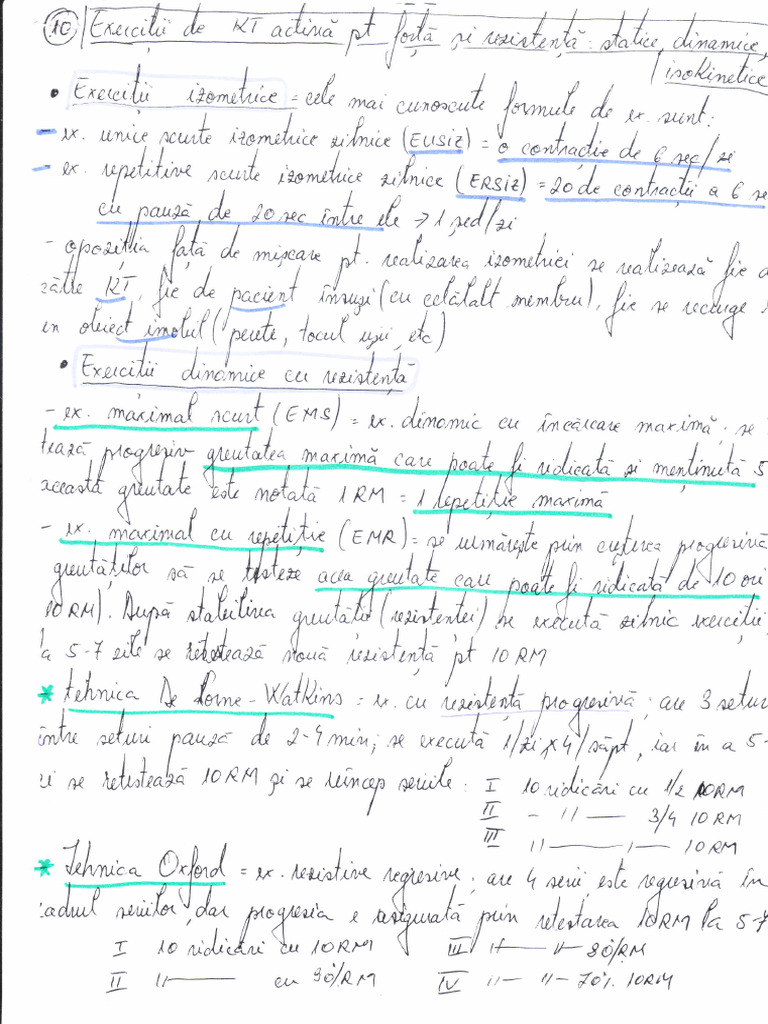 10 Exercitii de KT activă pt forță și rezistență: statice, dinamice,
izokinetice
• Exercitii izometrice = cele mai cunoscute formule de ex. sunt:
- ex. unice scurte izometrice zilnice (EUSIZ) = o contracție de 6 sec/zi
- ex. repetitive scurte izometrice zilnice (ERSIZ) = 20 de contracții a 6 se
cu pauză de 20 sec între ele → 1 șed/zi
- opoziția față de mișcare pt. realizarea izometriei se realizează fie d
către KT, fie de pacient însuși (cu celălalt membru), fie se recurge l
un obiect imobil (perete, tocul ușii, etc)
• Exercitii dinamice cu rezistență
- ex. maximal scurt (EMS) = ex. dinamic cu încărcare maximă; se
tează progresiv greutatea maximă care poate fi ridicată si menținută 5
această greutate este notată 1RM = 1 repetiție maximă
- ex. maximal cu repetiție (EMR) = se urmărește prin creșterea progresivă
greutăților să se testeze acea greutate care poate fi ridicată de 10 ori
10RM). După stabilirea greutății (rezistenței) se execută zilnic exercitii,
a 5-7 zile se retestează nouă rezistență pt 10RM
* tehnica De Lorne-Watkins = ex. cu rezistență progresivă; are 3 setur
între seturi pauză de 2-4 min; se execută 1/zi x 4/săpt, iar în a 5-
zi se retestează 10RM și se reîncep seriile: I 10 ridicări cu 1/2 10RM
II - 〃 — 3/4 10RM
III 〃 — 1 — 10RM
* Tehnica Oxford = ex. rezistive regresive; are 4 serii, este regresivă în
cadrul seriilor, dar progresia e asigurată prin retestarea 10RM la 5-7
I 10 ridicări cu 10RM III 〃 — 〃 — 80%RM
II 〃 — cu 90%RM IV 〃 — 〃 — 70% 10RM